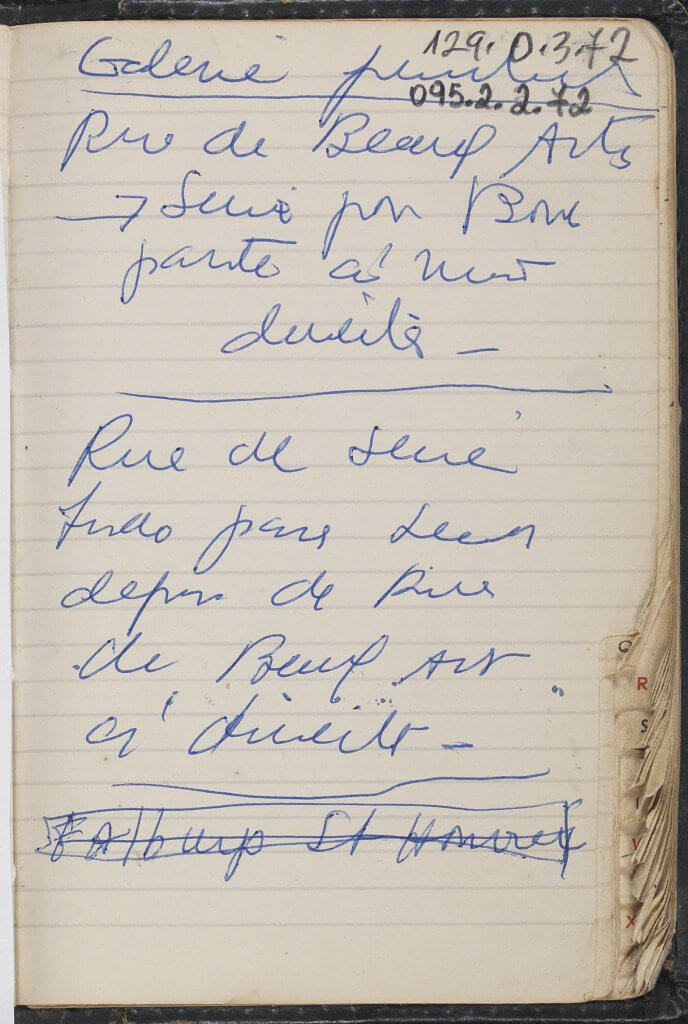 129.0.3.72
Galerie
095.2.2.72
Rue de Beaux Arts
→ Seine por Bona
parte a' mão
direita –
Rue de Seine
tudo para
depois de Rue
de Beaux Art
a' direita –
St Honoré